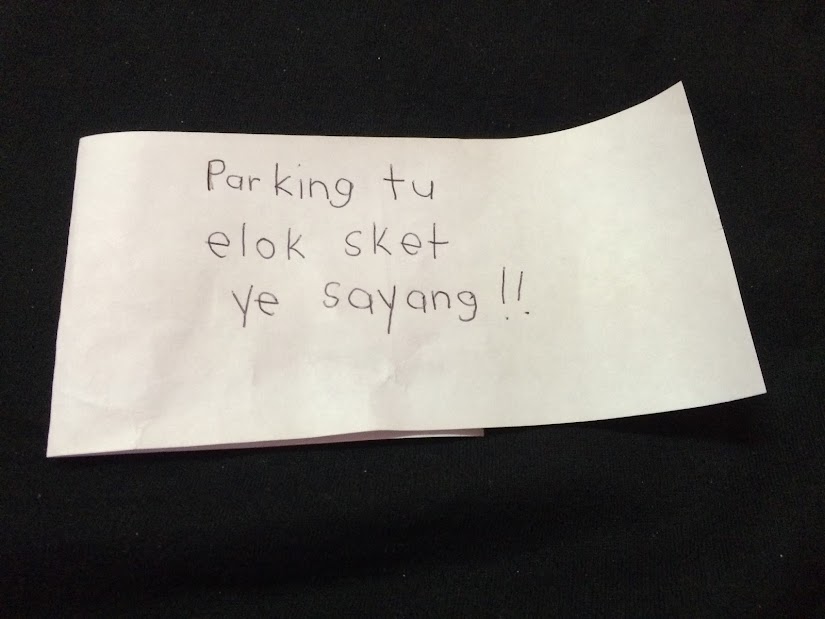 Parking tu
elok sket
ye sayang!!